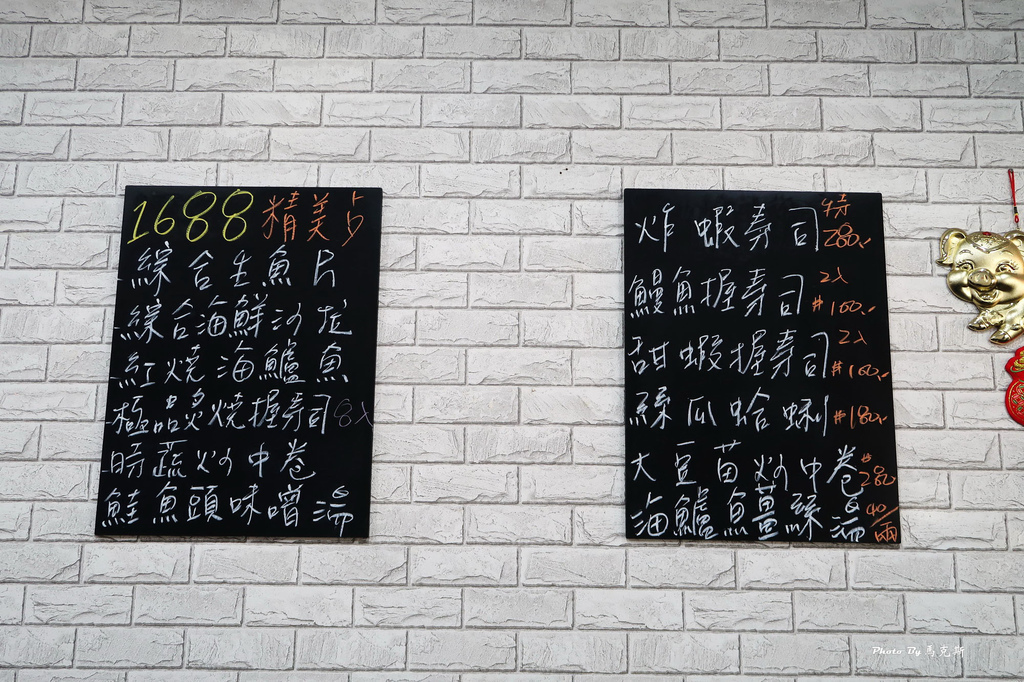 1688 精美点
綜合生魚片
綜合海鮮沙拉
紅燒海鱸魚
極品炙燒握壽司8入
時蔬炒中卷
鮭魚頭味噌湯
炸蝦壽司 特280.-
鰻魚握壽司 2入 #100.-
甜蝦握壽司 2入 #160.-
絲瓜蛤蜊 #180.-
大豆苗炒中卷 #280
海鱸魚薑絲湯 40/兩
Photo By 馬克斯